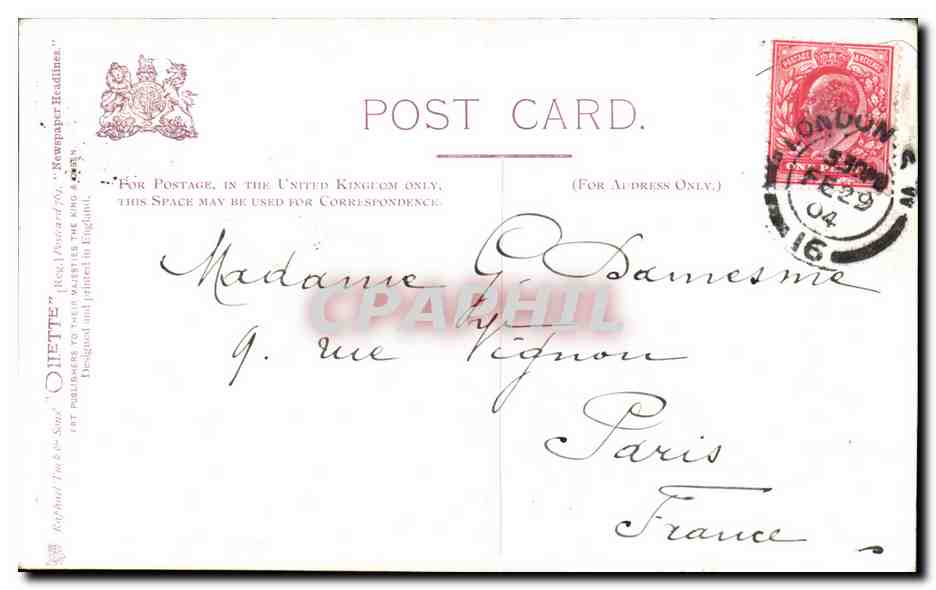 POST CARD.
FOR POSTAGE, IN THE UNITED KINGDOM ONLY,
THIS SPACE MAY BE USED FOR CORRESPONDENCE.
(FOR ADDRESS ONLY.)
POSTAGE & REVENUE
LONDON S.W
FE 29
04
16
Madame G. Damesme
9. rue Vignon
Paris
France
CPAPHIL
Raphael Tuck & Sons' "OILETTE" [Reg.] Postcard 769. "Newspaper Headlines."
ART PUBLISHERS TO THEIR MAJESTIES THE KING & QUEEN.
Designed and printed in England.